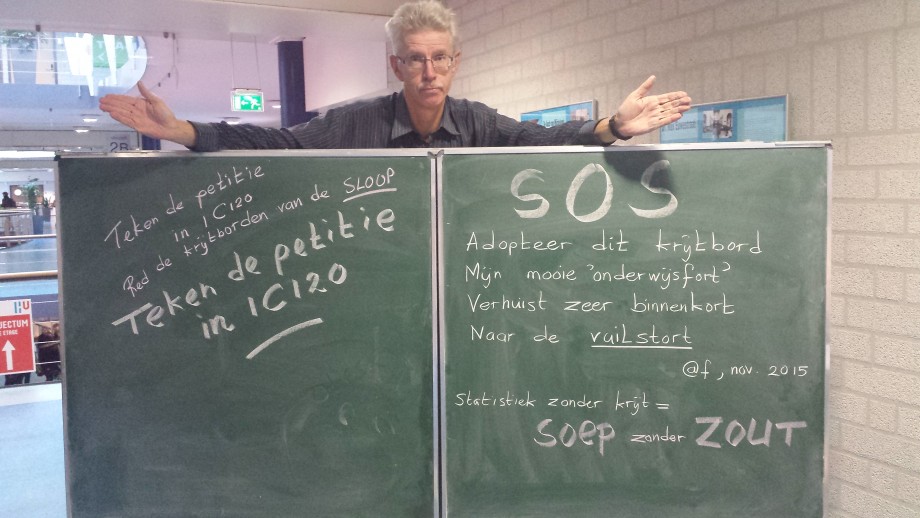 2B
Teken de petitie
in 1C120
Red de krijtborden van de SLOOP
Teken de petitie
in 1C120
SOS
Adopteer dit krijtbord
Mijn mooie 'onderwijsfort'
Verhuist zeer binnenkort
Naar de vuilstort
@f, nov. 2015
Statistiek zonder krijt =
SOEP zonder ZOUT
HU